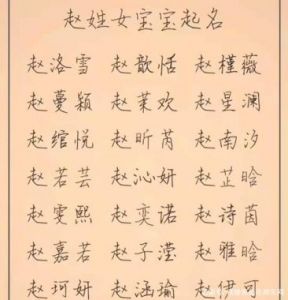 赵姓女宝宝起名
赵洛雪 赵歆恬 赵槿薇
赵蔓颖 赵茉欢 赵星澜
赵绾悦 赵昕芮 赵南汐
赵若芸 赵沁妍 赵芷晗
赵雯熙 赵奕诺 赵诗茵
赵嘉若 赵子滢 赵雅晗
赵珂妍 赵涵瑜 赵伊可